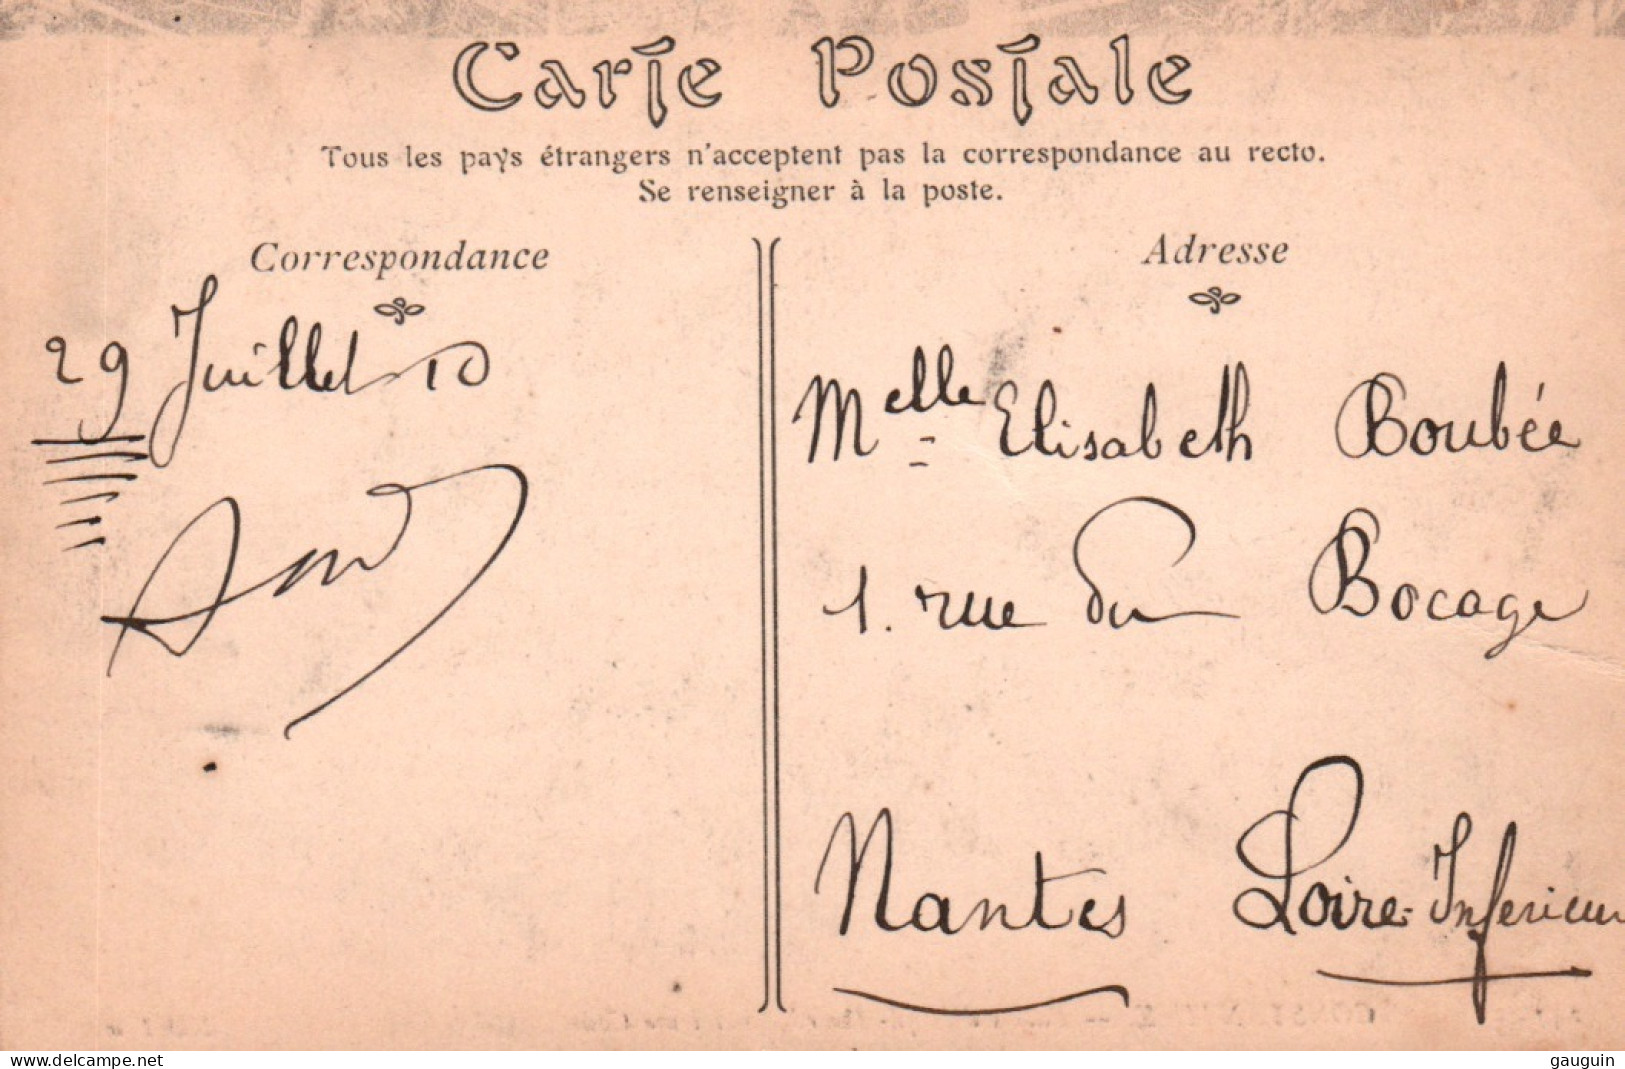 Carte Postale
Tous les pays étrangers n'acceptent pas la correspondance au recto.
Se renseigner à la poste.
Correspondance
29 Juillet 10
Adresse
Melle Elisabeth Boubée
1. rue du Bocage
Nantes Loire-Inferieur
www.delcampe.net
gauguin